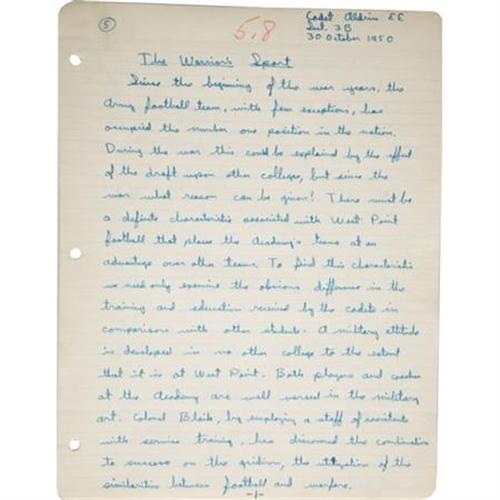 5
5.8
Cadet Aldrin EE
Sect. 3B
30 October 1950
The Warrior's Sport
Since the beginning of the war years, the
Army football team, with few exceptions, has
occupied the number one position in the nation.
During the war this could be explained by the effect
of the draft upon other colleges, but since the
war what reason can be given? There must be
a definite characteristic associated with West Point
football that places the Academy's teams at an
advantage over other teams. To find this characteristic
we need only examine the obvious difference in the
training and education received by the cadets in
comparison with other students. A military attitude
is developed in no other college to the extent
that it is at West Point. Both players and coaches
at the Academy are well versed in the military
art. Colonel Blaik, by employing a staff of assistants
with service training, has discovered the combination
to success on the gridiron, the utilization of the
similarities between football and warfare.
-1-